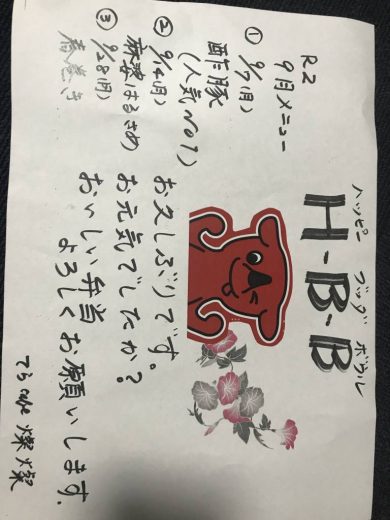 ハッピー ブッダ ボウル
H-B-B
R2
9月メニュー
① 9/7(月)
酢豚
(人気No1)
② 9/14(月)
麻婆はるさめ
③ 9/28(月)
春巻き
お久しぶりです。
お元気でしたか?
おいしい弁当
よろしくお願いします.
てらcafe 燦燦